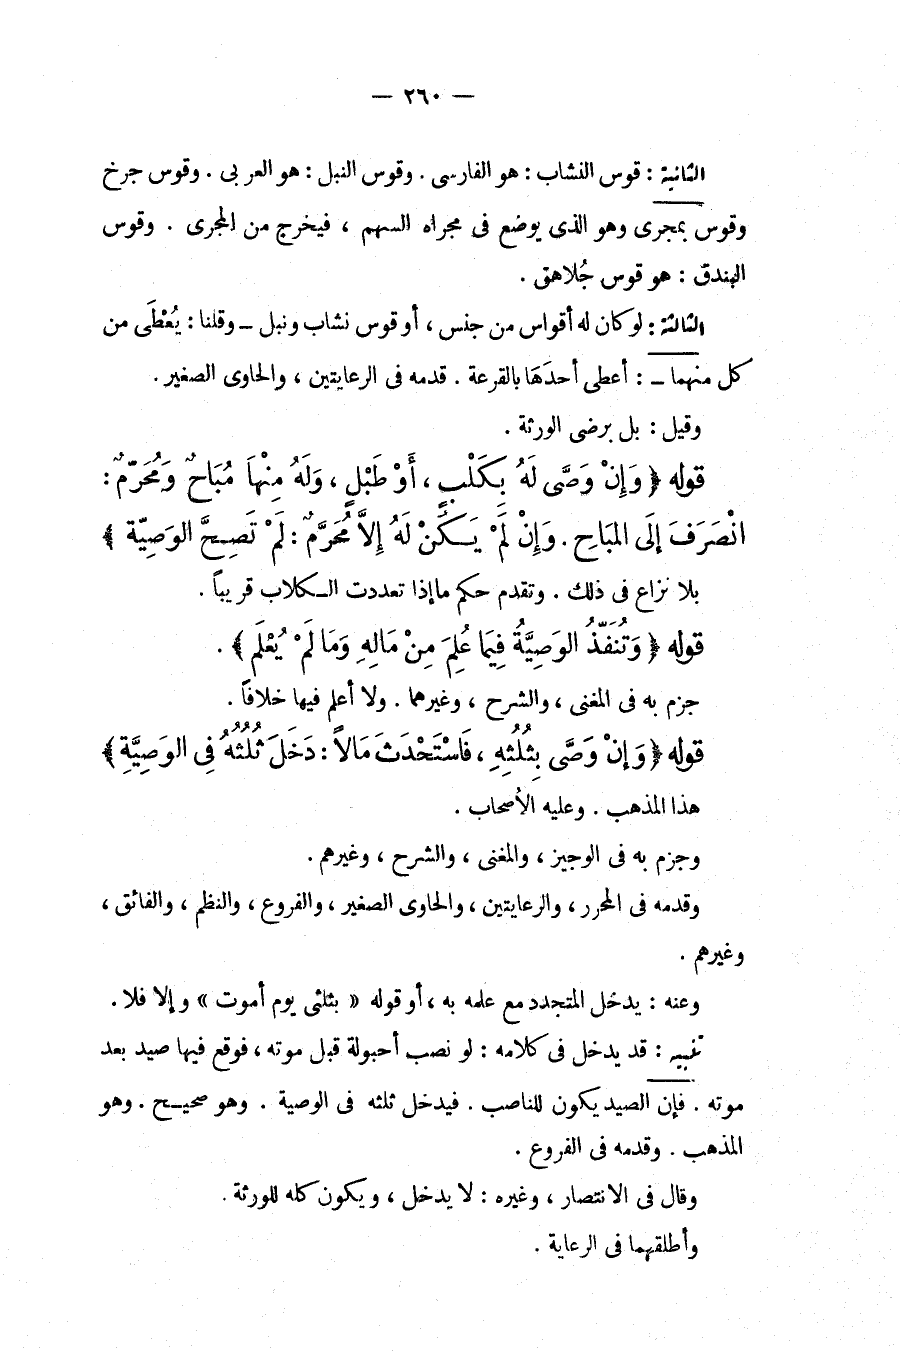 — ٢٦٠ —
الثانية : قوس النشاب : هو الفارسى . وقوس النبل : هو العربى . وقوس جرخ
وقوس بمجرى وهو الذى يوضع فى مجراه السهم ، فيخرج من المجرى . وقوس
البندق : هو قوس جُلاهق .
الثالثة : لو كان له أقواس من جنس ، أو قوس نشاب ونبل – وقلنا : يُعْطَى من
كل منهما – : أعطى أحدَهَا بالقرعة . قدمه فى الرعايتين ، والحاوى الصغير .
وقيل : بل برضى الورثة .
قوله ﴿ وَإِنْ وَصَّى لَهُ بِكَلْبٍ ، أَوْ طَبْلٍ ، وَلَهُ مِنْهَا مُبَاحٌ وَمُحَرَّمٌ :
انْصَرَفَ إِلَى المُبَاحِ . وَإِنْ لَمْ يَكُنْ لَهُ إِلاَّ مُحَرَّمٌ : لَمْ تَصِحَّ الوَصِيَّة ﴾
بلا نزاع فى ذلك . وتقدم حكم ما إذا تعددت الكلاب قريباً .
قوله ﴿ وَتُنَفَّذُ الوَصِيَّةُ فِيمَا عُلِمَ مِنْ مَالِهِ وَمَا لَمْ يُعْلَم ﴾ .
جزم به فى المغنى ، والشرح ، وغيرهما . ولا أعلم فيها خلافاً .
قوله ﴿ وَإِنْ وَصَّى بِثُلُثِهِ ، فَاسْتَحْدَثَ مَالاً : دَخَلَ ثُلُثُهُ فِى الوَصِيَّةِ ﴾
هذا المذهب . وعليه الأصحاب .
وجزم به فى الوجيز ، والمغنى ، والشرح ، وغيرهم .
وقدمه فى المحرر ، والرعايتين ، والحاوى الصغير ، والفروع ، والنظم ، والفائق ،
وغيرهم .
وعنه : يدخل المتجدد مع علمه به ، أو قوله « بثلثى يوم أموت » وإلا فلا .
تنبيه : قد يدخل فى كلامه : لو نصب أحبولة قبل موته ، فوقع فيها صيد بعد
موته . فإن الصيد يكون للناصب . فيدخل ثلثه فى الوصية . وهو صحيح . وهو
المذهب . وقدمه فى الفروع .
وقال فى الانتصار ، وغيره : لا يدخل ، ويكون كله للورثة .
وأطلقهما فى الرعاية .